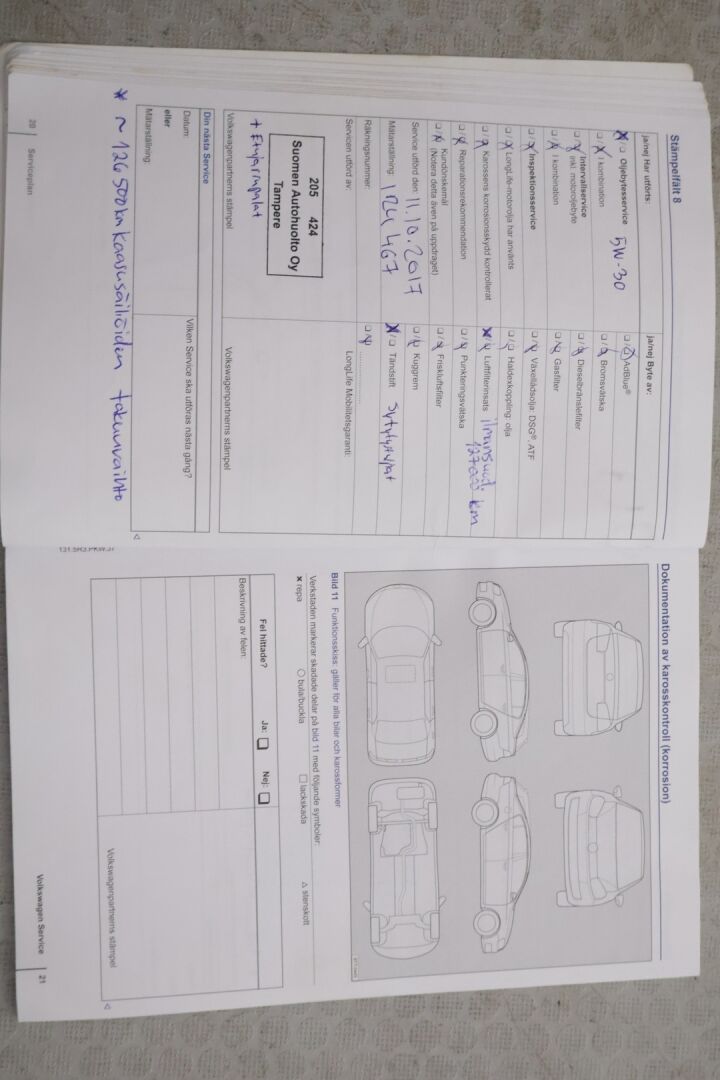 Stämpelfält 8
ja/nej Har utförts:
Oljebytesservice 5W-30
I kombination
Intervallservice
inkl. motoroljebyte
I kombination
Inspektionsservice
LongLife-motorolja har använts
Karossens korrosionsskydd kontrollerat
Reparationsrekommendation
Kundönskemål
(Notera detta även på uppdraget)
Service utförd den: 11.10.2017
Mätarställning: 124 467
Räkningsnummer:
Servicen utförd av:
205 424
Suomen Autohuolto Oy
Tampere
+ Etujarrupalat
Volkswagenpartnerns stämpel
ja/nej Byte av:
AdBlue®
Bromsvätska
Dieselbränslefilter
Gasfilter
Växellådsolja: DSG®, ATF
Haldexkoppling: olja
Luftfilterinsats ilmansuod.
127000 km
Punkteringsvätska
Friskluftsfilter
Kuggrem
Tändstift Sytytystulpat
LongLife Mobilitetsgaranti:
Volkswagenpartnerns stämpel
Din nästa Service
Datum:
eller
Mätarställning:
Vilken Service ska utföras nästa gång?
* ~ 126 500 km Kaasusäiliöiden takuuvaihto
20 Serviceplan
131.5R3.PKW.37
Dokumentation av karosskontroll (korrosion)
Bild 11 Funktionsskiss: gäller för alla bilar och karossformer
Verkstaden markerar skadade delar på bild 11 med följande symboler:
x repa
○ bula/buckla
□ lackskada
△ stenskott
Fel hittade? Ja: Nej:
Beskrivning av felen:
Volkswagenpartnerns stämpel
Volkswagen Service 21